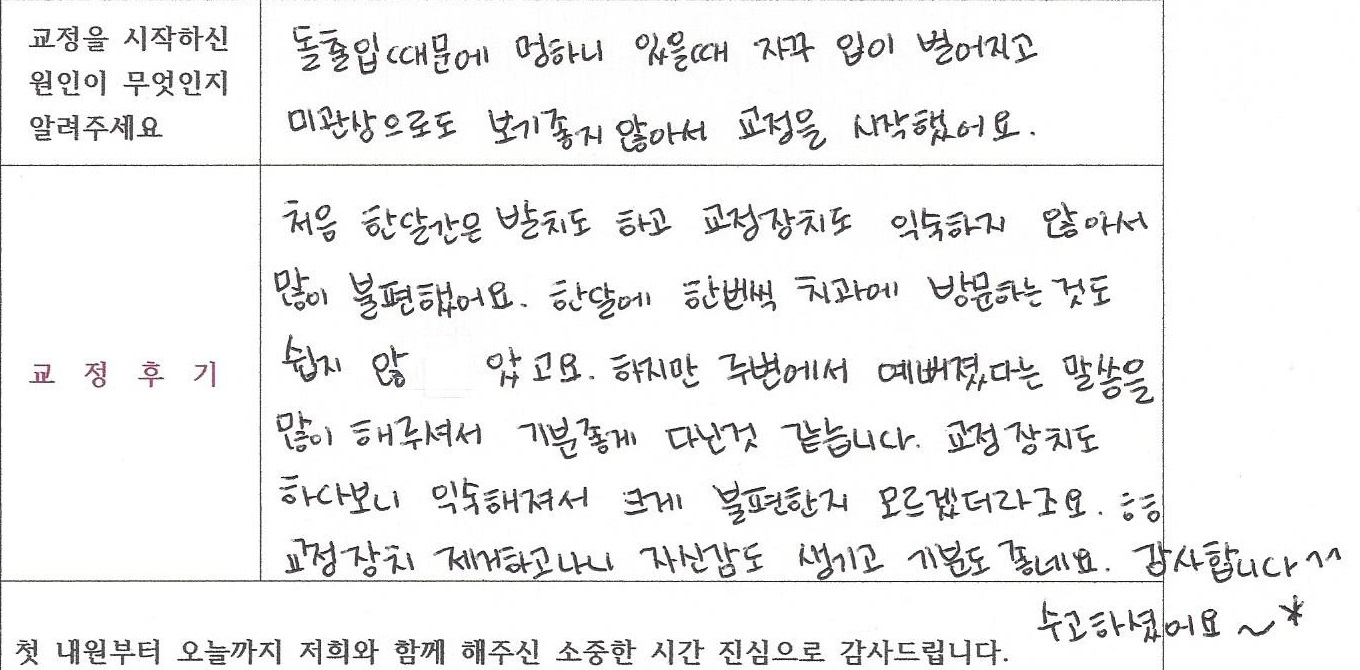 교정을 시작하신
원인이 무엇인지
알려주세요
돌출입때문에 멍하니 있을때 자꾸 입이 벌어지고
미관상으로도 보기좋지 않아서 교정을 시작했어요.
교 정 후 기
처음 한달간은 발치도 하고 교정장치도 익숙하지 않아서
많이 불편했어요. 한달에 한번씩 치과에 방문하는 것도
쉽지 않 았고요. 하지만 주변에서 예뻐졌다는 말씀을
많이 해주셔서 기분좋게 다닌것 같습니다. 교정장치도
하다보니 익숙해져서 크게 불편한지 모르겠더라조요. ㅎㅎ
교정장치 제거하고나니 자신감도 생기고 기분도 좋네요. 감사합니다^^
수고하셨어요~*
첫 내원부터 오늘까지 저희와 함께 해주신 소중한 시간 진심으로 감사드립니다.